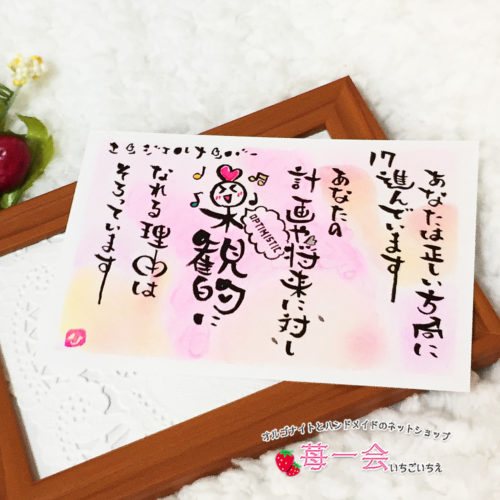 エンジェルナンバー
17
あなたは正しい方向に
進んでいます
あなたの
計画や将来に対し
楽観的に
OPTIMISTIC
なれる理由は
そろっています
オルゴナイトとハンドメイドのネットショップ
苺一会 いちごいちえ